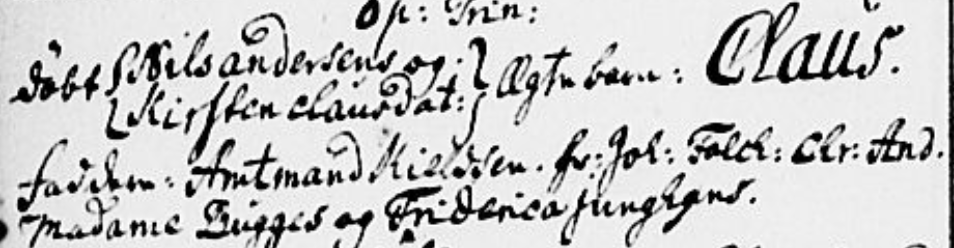 Op: Trin:
döbt { Nils andersens og } Ægte barn: Claus.
{ Kirsten clausdat: }
faddere: Amtmand Kieldsen. hr: Joh: Falch: Chr: And.
Madame Bugges og Friderica Junghans.